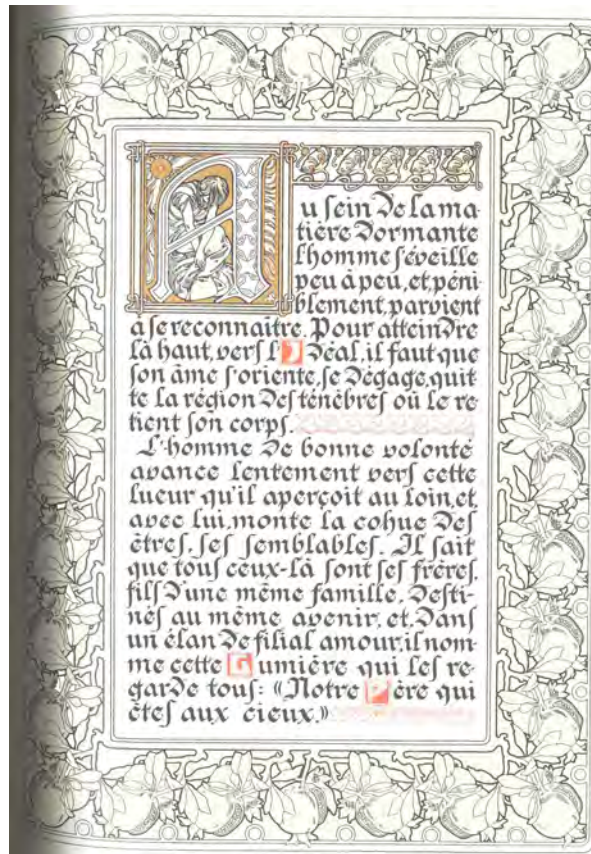 Au sein de la ma-
tière dormante
l'homme s'éveille
peu à peu, et, péni-
blement, parvient
à se reconnaître. Pour atteindre
là haut, vers l'Idéal, il faut que
son âme s'oriente, se dégage, quit-
te la région des ténèbres où le re-
tient son corps.
L'homme de bonne volonté
avance lentement vers cette
lueur qu'il aperçoit au loin, et,
avec lui, monte la cohue des
êtres, ses semblables. Il sait
que tous ceux-là sont ses frères,
fils d'une même famille. Desti-
nés au même avenir, et, dans
un élan de filial amour, il nom-
me cette Lumière qui les re-
garde tous: «Notre Père qui
êtes aux cieux.»